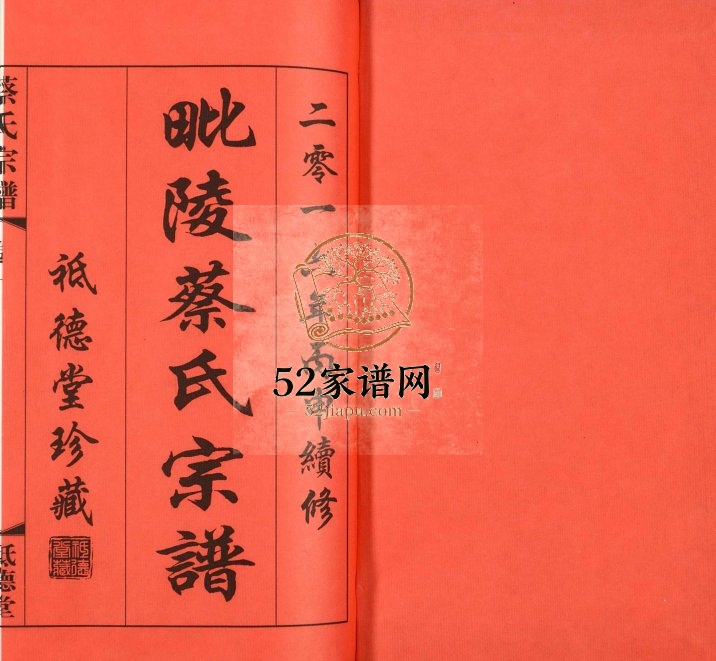 二零一六年丙申續修
毗陵蔡氏宗譜
祗德堂珍藏
蔡氏宗譜
祗德堂
52家谱网
52jiapu.com